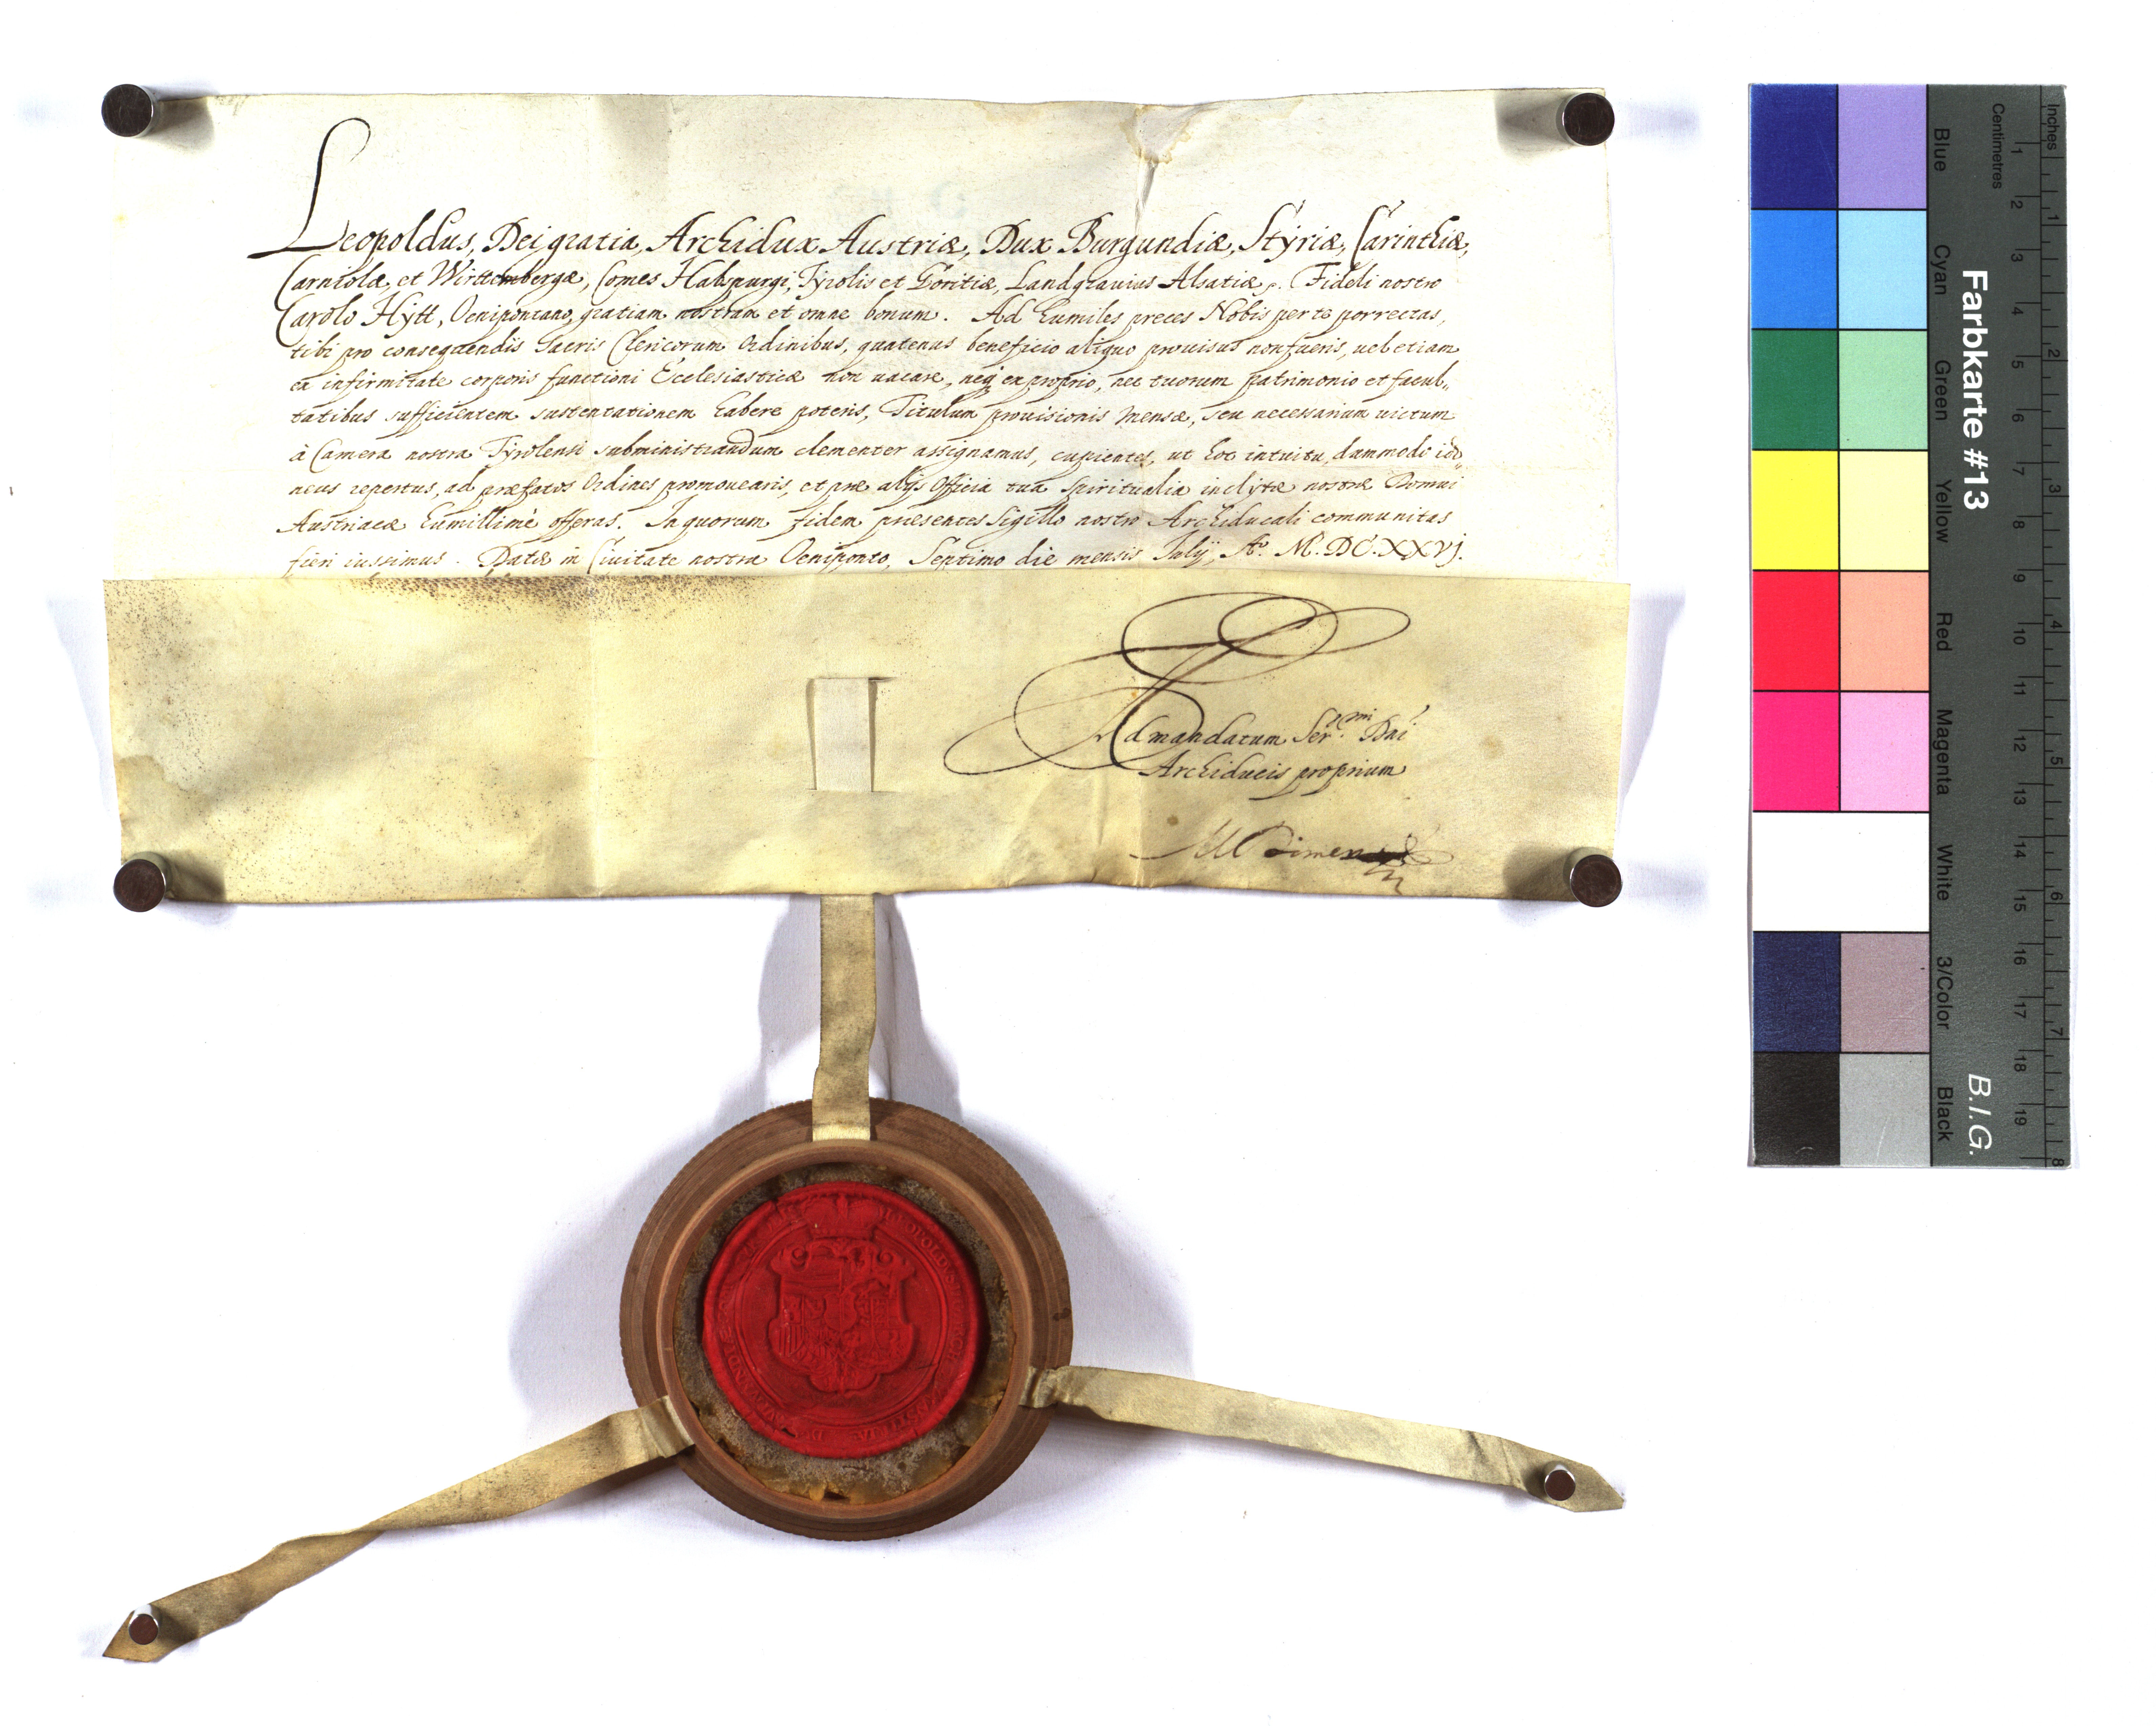 Leopoldus, Dei gratia, Archidux Austriæ, Dux Burgundiæ, Styriæ, Carinthiæ,
Carniolæ, et Wirttembergæ, Comes Habspurgi, Tyrolis et Goritiæ, Landgrauius Alsatiæ. Fideli nostro
Carolo Hÿtt, Oenipontano, gratiam nostram et omne bonum. Ad humiles preces Nobis per te porrectas,
tibi pro consequendis Sacris Clericorum Ordinibus, quatenus beneficio aliquo prouisus non fueris, uel etiam
ex infirmitate corporis functioni Ecclesiasticæ non uacare, neq ex proprio, nec tuorum patrimonio et facul,,
tatibus sufficientem sustentationem habere poteris, Titulum prouisionis mensæ, seu necessarium uictum
à Camera nostra Tyrolensi subministrandum clementer assignamus, cupientes, ut hoc intuitu, dummodo ido,,
neus repertus, ad præfatos Ordines promouearis, et præ alijs Officia tua spiritualia inclytæ nostræ Domui
Austriacæ humillimè offeras. In quorum fidem presentes Sigillo nostro Archiducali communitas
fieri iussimus. Datæ in Ciuitate nostra Oeniponto, Septimo die mensis Julij, Aº. M.DC.XXVJ.
Ad mandatum Ser.mi Dni
Archiducis proprium
Farbkarte #13
B.I.G.
Blue
Cyan
Green
Yellow
Red
Magenta
White
3/Color
Black
Centimetres
1 2 3 4 5 6 7 8 9 10 11 12 13 14 15 16 17 18 19
Inches
1 2 3 4 5 6 7 8